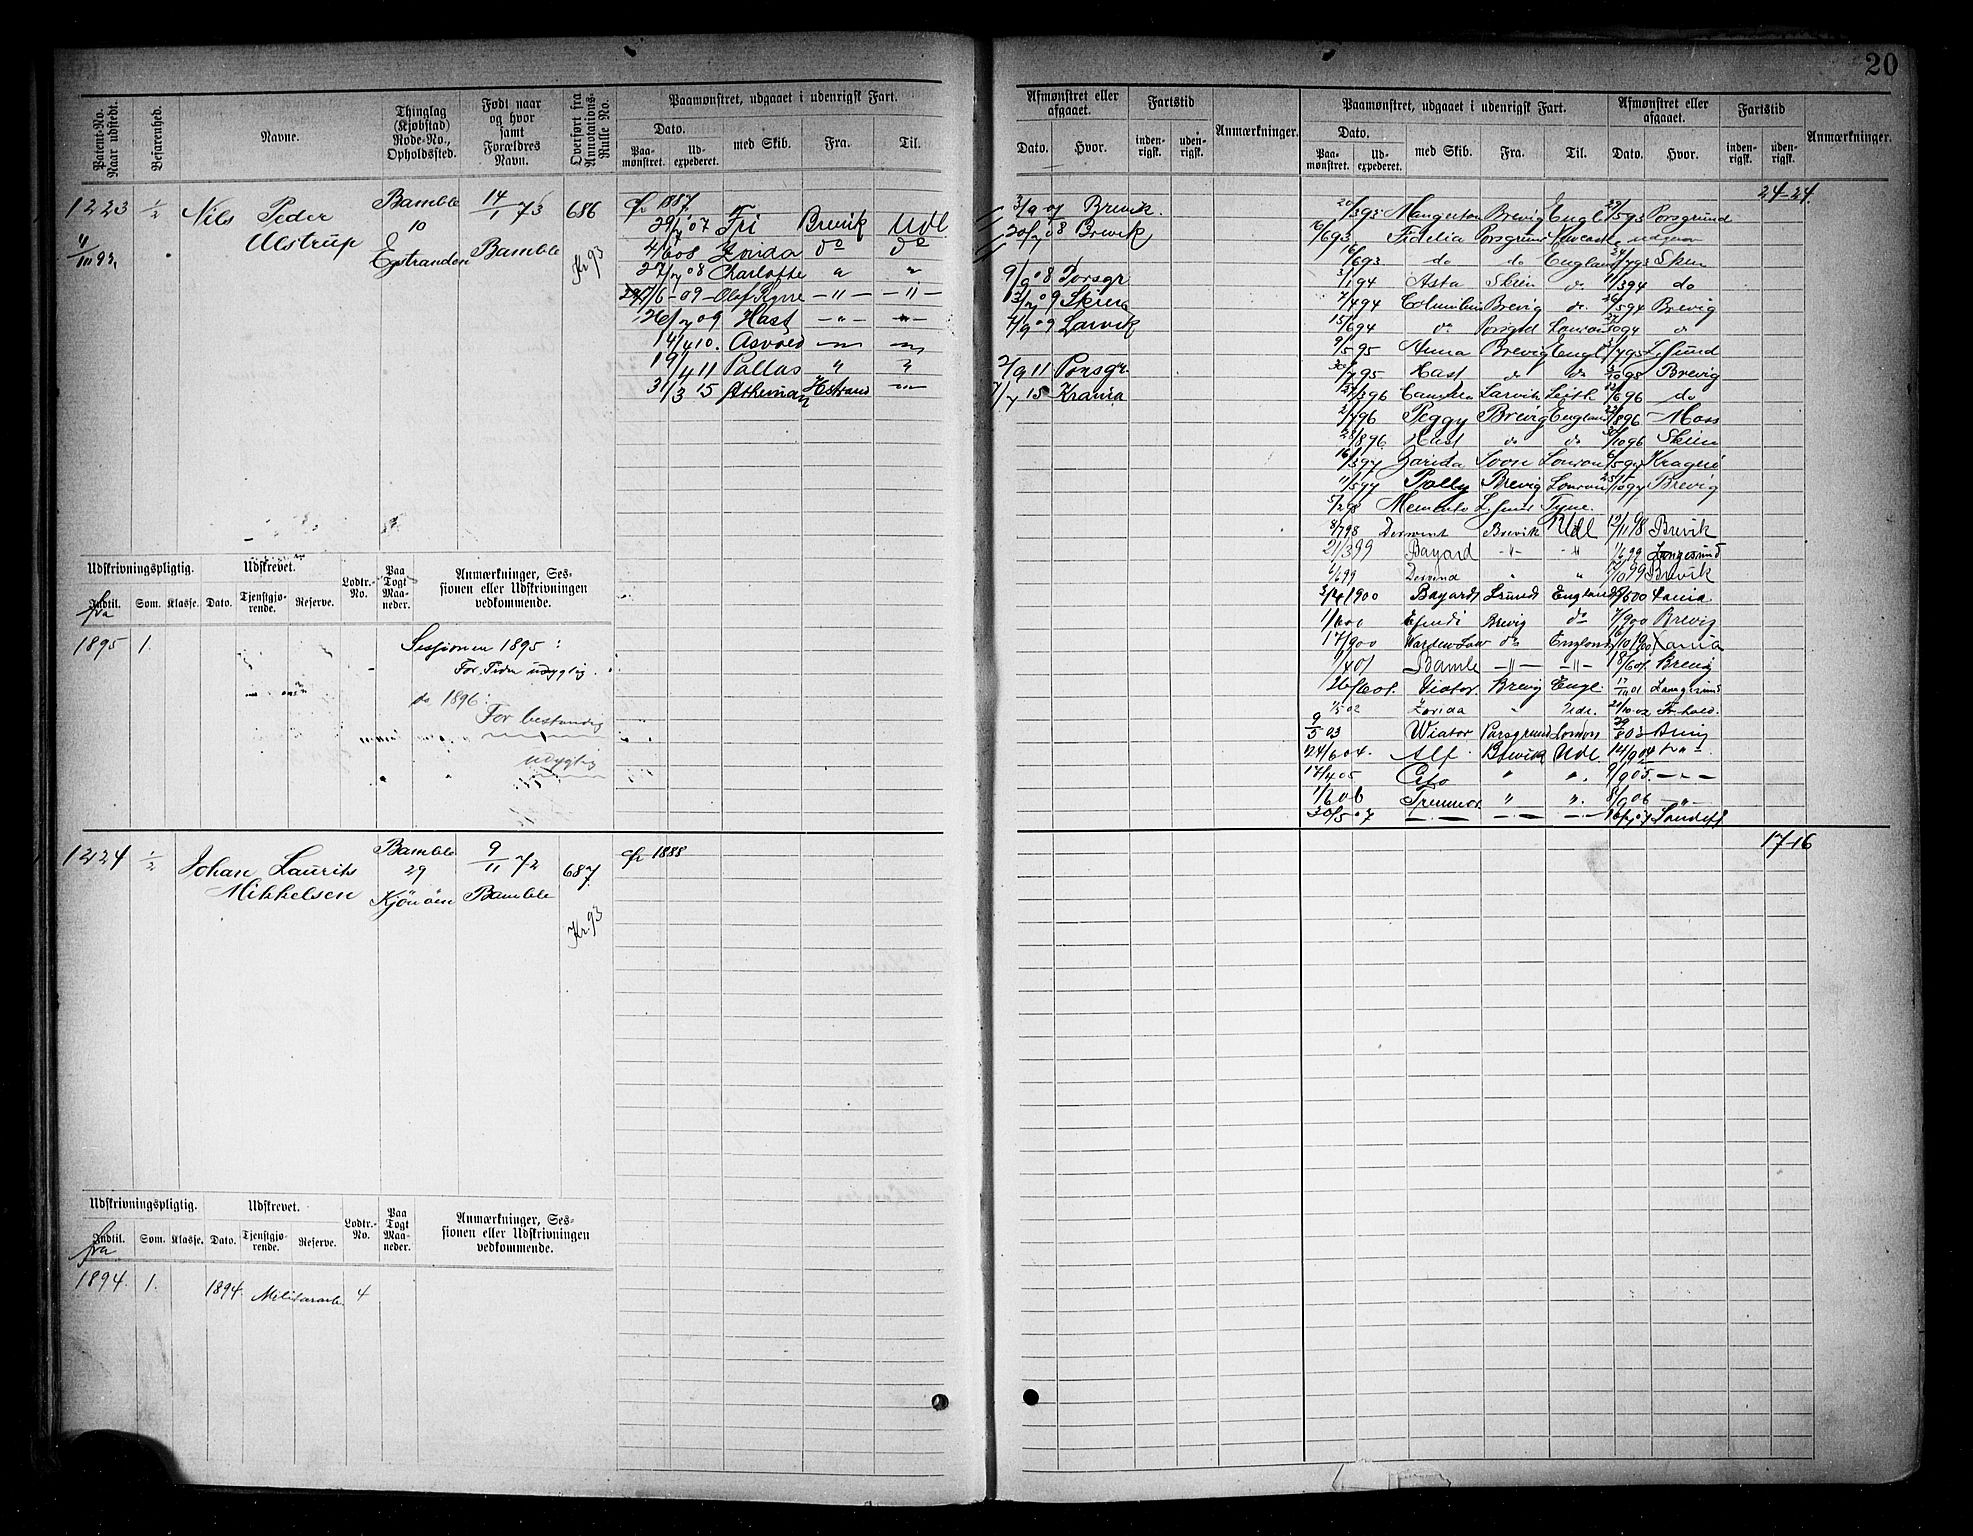 20
Patent-No. Naar udstedt.
Befarenhed.
Navne.
Thinglag (Kjøbstad) Rode-No., Opholdssted.
Født naar og hvor samt Forældres Navn.
Overført fra Annotations-Rulle No.
Paamønstret, udgaaet i udenrigsk Fart.
Dato.
Paa-mønstret.
Ud-expederet.
med Skib.
Fra.
Til.
Afmønstret eller afgaaet.
Dato.
Hvor.
Fartstid
inden-rigsk.
uden-rigsk.
Anmærkninger.
Paamønstret, udgaaet i udenrigsk Fart.
Dato.
Paa-mønstret.
Ud-expederet.
med Skib.
Fra.
Til.
Afmønstret eller afgaaet.
Dato.
Hvor.
Fartstid
inden-rigsk.
uden-rigsk.
Anmærkninger.
1223 1/2 Nils Peder Bamble 14/1 73 686
Alstrup 10
Egstranden Bamble Kr 93
1887
29/7 07 Fri Brevik Udl. 3/9 07 Brevik.
4/6 08 Zorida do do 20/7 08 Brevik
27/7 08 Charlotte " " 9/9 08 Porsgr
7/6 - 09 - Olaf Kyrre - " - - " - 13/7 09 Skien
26/7 09 Hast - " - - " - 4/9 09 Larvik
14/4 10. Asvald
19/4 11 Pallas " " 2/9 11 Porsgr.
31/3 15 Athenian Hstrand - " - 7/7 15 Krania
24-24
20/3 93 Mangerton Brevig Engl 23/5 93 Porsgrund
16/6 93 Fidelia Porsgrund Newcastle
16/6 93 do do England 24/7 93 Skien
3/1 94 Asta Skien do 11/3 94 do
7/4 94 Columbus Brevig do. 26/5 94 Brevig
15/6 94 do Porsgrd London
9/5 95 Anna Brevig Engl 31/7 95 L.sund
30/7 95 Hast do do Brevig
27/3 96 Larvik Leith /6 96 do
2/7 96 Peggy Brevig England 22/8 96 Moss
28/8 96 Hast do do /10 96 Skien
16/3 97 Zarida Soon London 6/5 97 Kragerö
11/5 97 Polly Brevig London 25/10 97 Brevig
5/2 98 Memento L.sund Tyne.
8/7 98 Derwent Brevik Udl 12/11 98 Brevik
21/3 99 Bayard - " - - " - 1/6 99 Langesund
6/6 99 " " /10 99 Brevik
3/4 1900 Bayard Lsund England /6 00
1/6 00 Brevig do 7/9 00 Brevig
17/9 00 do England 16/10 1900
1/4 01 Bamle - " - - " - 18/6 01 Brevig
26/6 01. Viator Brevig Engl. 17/11 01 Langesund
1/5 02 Zorida " Udl. 21/10 02 Fr.hald.
9/5 03 Wiator Porsgrund London 29/8 03
24/6 04. Alf Brevik Udl. 14/9 04
17/4 05 " ". 9/9 05. - " -
1/6 06 " ". 8/9 06 - " -
30/5 07 16/7 07 Sandefj
Udskrivningspligtig.
Indtil. fra
Som.
Klasse.
Udskrevet.
Dato.
Tjenstgjørende.
Reserve.
Lodtr.-No.
Paa Togt Maaneder.
Anmærkninger, Sessionen eller Udskrivningen vedkommende.
1895 1. Sessionen 1895:
For Tiden udygtig.
do 1896:
For bestandig
udygtig
1224 1/2 Johan Laurits Bamble 9/11 72 687 1888 17-16
Mikkelsen 29
Kjönöen Bamble
Kr. 93
Udskrivningspligtig.
Indtil. fra
Som.
Klasse.
Udskrevet.
Dato.
Tjenstgjørende.
Reserve.
Lodtr.-No.
Paa Togt Maaneder.
Anmærkninger, Sessionen eller Udskrivningen vedkommende.
1894. 1. 1894. Militærarb. 4